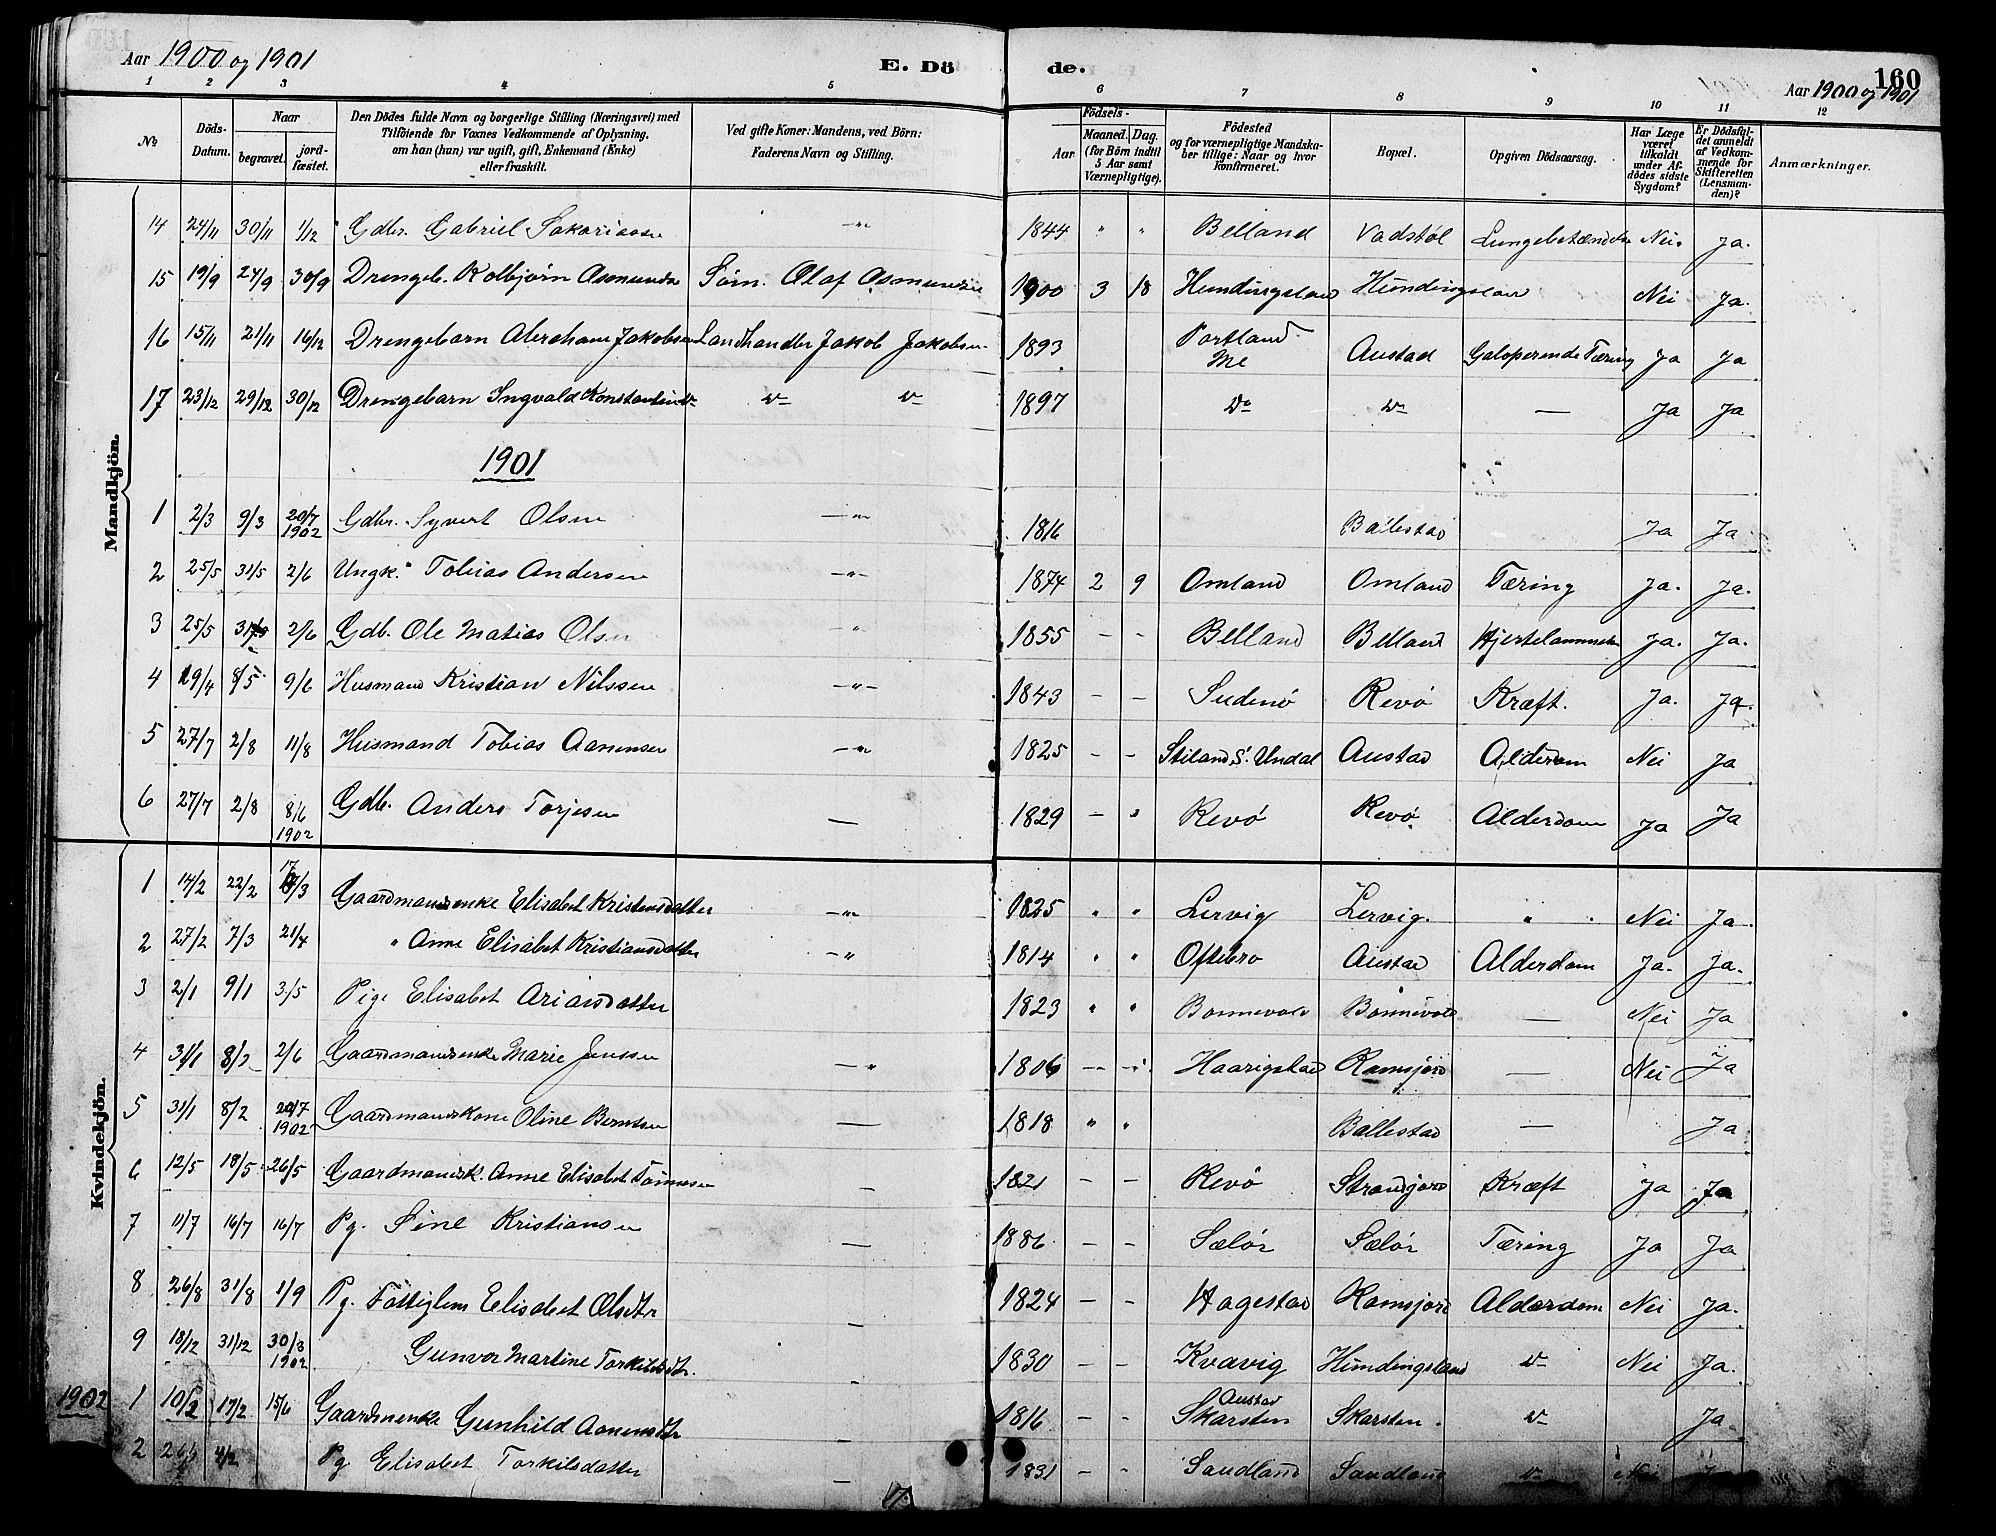 Aar 1900 og 1901
E. Dö
de.
160
Aar 1900 og 1901
1 2 3 4 5 6 7 8 9 10 11 12
No
Döds-Datum.
Naar
begravet.
jord-fæstet.
Den Dödes fulde Navn og borgerlige Stilling (Næringsvei) med
Tilföiende for Voxnes Vedkommende af Oplysning,
om han (hun) var ugift, gift, Enkemand (Enke)
eller fraskilt.
Ved gifte Koner: Mandens, ved Börn:
Faderens Navn og Stilling.
Födsels-
Aar
Maaned. Dag.
(for Börn indtil
5 Aar samt
Værnepligtige).
Födested
og for værnepligtige Mandska-
ber tillige: Naar og hvor
konfirmeret.
Bopæl.
Opgiven Dödsaarsag.
Har Læge
været
tilkaldt
under Af-
dödes sidste
Sygdom?
Er Dödsfal-
det anmeldt
af Vedkom-
mende for
Skifteretten
(Lensman-
den)?
Anmærkninger.
Mandkjön.
14 24/11 30/11 1/12 Gdbr. Gabriel Sakariassen —"— 1844 " " Belland Vadstøl Lungebetændelse Nei. Ja.
15 19/9 24/9 30/9 Drengeb. Kolbjørn Asmundsen Sørn. Olaf Asmundsen 1900 3 18 Hundingsland Hundingsland Nei Ja.
16 15/11 21/11 16/12 Drengebarn Abraham Jakobsen Landhandler Jakob Jakobsen 1893 Portland Me Austad Galoperende Tæring Ja Ja
17 23/12 29/12 30/12 Drengebarn Ingvald Konstantin Do Do Do 1897 Do Do — Ja Ja
1901
1 2/3 9/3 20/7 1902 Gdbr. Syvert Olsen —"— 1816 Bållestad Ja Ja
2 25/5 31/5 2/6 Ungk. Tobias Andersen —"— 1874 2 9 Omland Omland Tæring Ja. Ja.
3 25/5 31/5 2/6 Gdb. Ole Matias Olsen " 1855 – – Belland Belland Hjertelammelse Ja. Ja.
4 29/4 8/5 9/6 Husmand Kristian Nilssen —"— 1843 – – Sudenø Revø Kræft. Ja. Ja.
5 27/7 2/8 11/8 Husmand Tobias Aanensen —"— 1825 – – Stiland, S. Undal Austad Alderdom Nei Ja
6 27/7 2/8 8/6 1902 Gdb. Anders Torjesen — 1829 – " Revø Revø Alderdom Ja Ja
Kvindekjön.
1 14/2 22/2 17/3 Gaardmandsenke Elisabet Kristensdatter —"— 1825 " " Lervig Lervig. " Nei Ja.
2 27/2 7/3 21/4 " Anne Elisabet Kristiansdatter —" 1814 " " Oftebro Austad Alderdom Ja. Ja.
3 2/1 9/1 3/5 Pige Elisabet Ariansdatter 1823 " " Bonnevold Bonnevold — Nei Ja
4 31/1 8/2 2/6 Gaardmandsenke Marie Jenssen —" 1806 – – Haarigstad Ramsjord — Nei Ja
5 31/1 8/2 20/7 1902 Gaardmandskone Oline Berntsen — 1818 " " Ballestad — Ja
6 12/5 18/5 26/5 Gaardmandsk. Anne Elisabet Tønnesen — 1821 – – Revø Strandjord Kræft Ja Ja
7 11/7 16/7 16/7 Pg. Sine Kristiansen — 1886 – – Sælør Sælør Tæring Ja Ja
8 26/8 31/8 1/9 Pg. Fattiglem Elisabet Olsdtr — 1824 – – Hagestad Ramsjord Alderdom Nei Ja.
9 18/12 31/12 30/3 1902 Gunvor Martine Torkilsdtr. — 1830 – – Kvavig Hundingsland Do Nei Ja.
1902
1 10/2 17/2 15/6 Gaardmenke Gunhild Aanensdtr — 1816 – – Austad Skarsten Skarsten. Do Ja
2 26/1 4/2 Pg Elisabet Torkilsdatter — 1831 – – Sandland Sandland Do Nei Ja